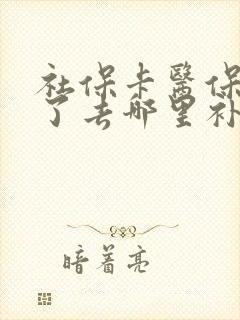 社保卡医保
了去哪里补
暗着亮